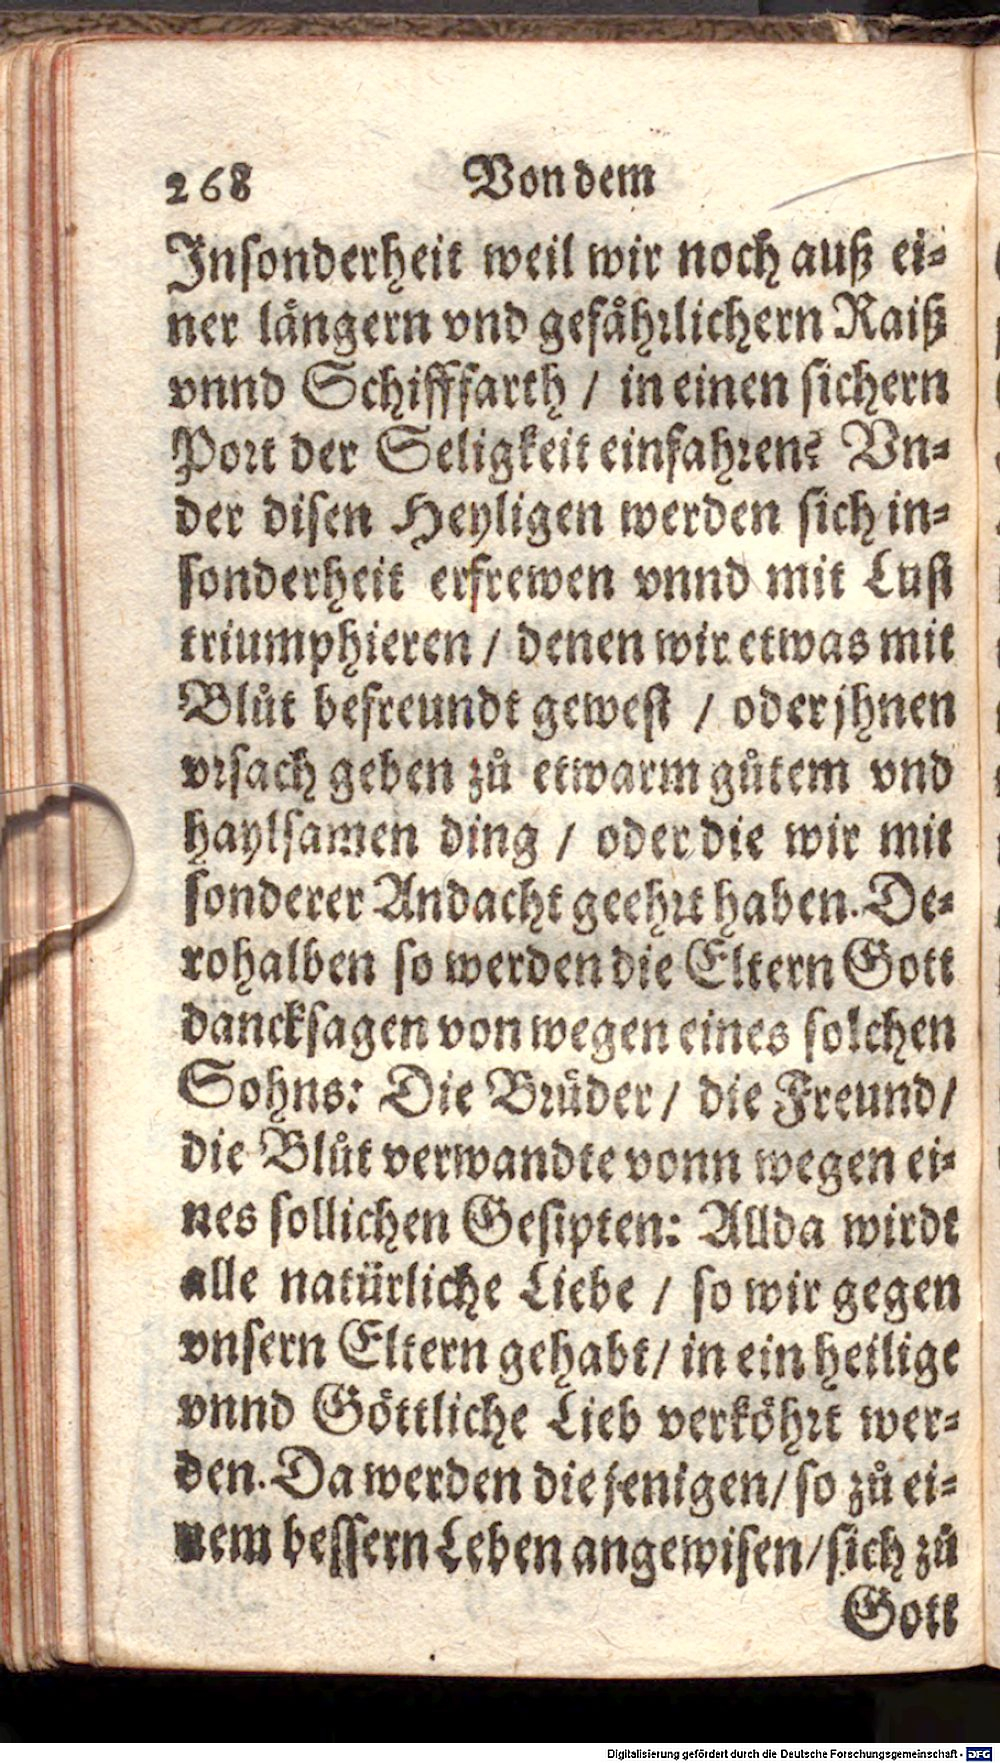 268 Von dem
Inſonderheit weil wir noch auß ei⸗
ner längern vnd gefåhꝛlichern Raiß
vnnd Schifffarth / in einen ſichern
Poꝛt der Seligkeit einfahꝛen? Vn⸗
der diſen Heyligen werden ſich in⸗
ſonderheit erfrewen vnnd mit Luſt
triumphieren / denen wir etwas mit
Blůt befreundt geweſt / oder jhnen
vꝛſach geben zů etwarm gůtem vnd
haylſamen ding / oder die wir mit
ſonderer Andacht geehꝛt haben. De⸗
rohalben ſo werden die Eltern Gott
danckſagen von wegen eines ſolchen
Sohns: Die Bꝛüder / die Freund /
die Blůt verwandte vonn wegen ei⸗
nes ſollichen Geſipten: Allda wirdt
alle natürliche Liebe / ſo wir gegen
vnſern Eltern gehabt / in ein heilige
vnnd Göttliche Lieb verköhꝛt wer⸗
den. Da werden die jenigen / ſo zů ei⸗
nem beſſern Leben angewiſen / ſich zů
Gott
Digitalisierung gefördert durch die Deutsche Forschungsgemeinschaft - DFG